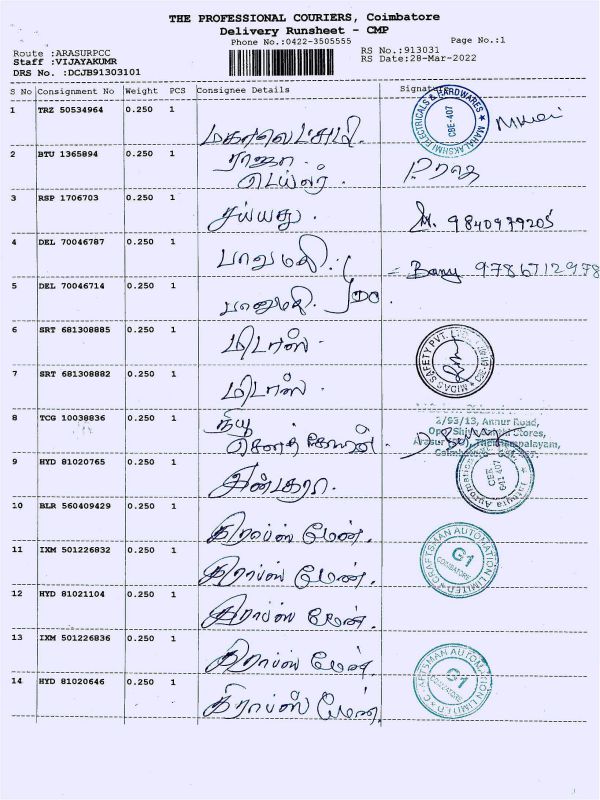 THE PROFESSIONAL COURIERS, Coimbatore
Delivery Runsheet - CMP
Phone No.:0422-3505555 Page No.:1
Route :ARASURPCC RS No.:913031
Staff :VIJAYAKUMR RS Date:28-Mar-2022
DRS No. :DCJB91303101
S No Consignment No Weight PCS Consignee Details Signature
1 TRZ 50534964 0.250 1 மகாலெட்சுமி
MAHALAKSHMI ELECTRICALS & HARDWARES ★ CBE-407
2 BTU 1365894 0.250 1 ராஜா
டெய்லர்.
3 RSP 1706703 0.250 1 M. 9840979205
4 DEL 70046787 0.250 1 பானுமதி. = Banu 9786712978
5 DEL 70046714 0.250 1 பானுமதி.
6 SRT 681308885 0.250 1 மிடாஸ்
MIDAS SAFETY PVT.
7 SRT 681308882 0.250 1 மிடாஸ்
8 TCG 10038836 0.250 1 நியூ
2/93/13, Annur Road,
Stores,
9 HYD 81020765 0.250 1
CBE
641 407
10 BLR 560409429 0.250 1 கிராப்ஸ் மேன்.
11 IXM 501226832 0.250 1 கிராப்ஸ் மேன்.
CRAFTSMAN AUTOMATION LIMITED ★ G1 COIMBATORE
12 HYD 81021104 0.250 1 கிராப்ஸ் மேன்.
13 IXM 501226836 0.250 1 கிராப்ஸ் மேன்.
14 HYD 81020646 0.250 1 கிராப்ஸ் மேன்.
CRAFTSMAN AUTOMATION LIMITED ★ G1 COIMBATORE